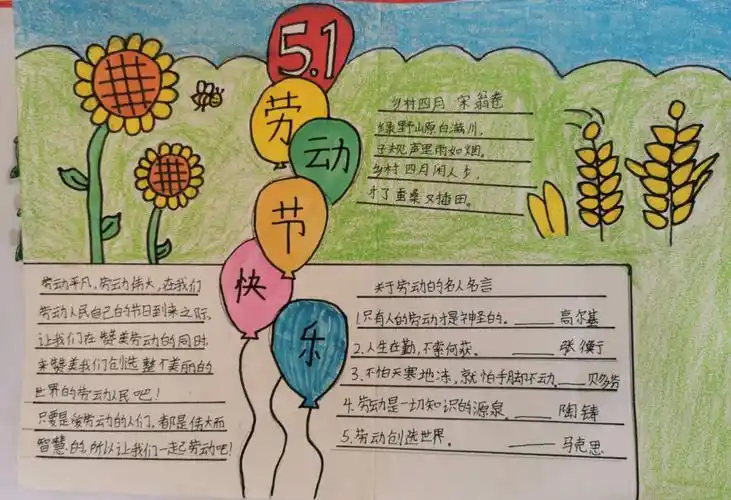 5.1
劳
动
节
快
乐
乡村四月 宋 翁卷
绿野山原白满川,
子规声里雨如烟。
乡村四月闲人少,
才了蚕桑又插田。
劳动平凡,劳动伟大,在我们
劳动人民自己的节日到来之际,
让我们在赞美劳动的同时
来赞美我们创造整个美丽的
世界的劳动人民吧!
只要是爱劳动的人们,都是伟大而
智慧的,所以让我们一起劳动吧!
关于劳动的名人名言
1.只有人的劳动才是神圣的。——高尔基
2.人生在勤,不索何获。——张衡
3.不怕天寒地冻,就怕手脚不动。——贝多芬
4.劳动是一切知识的源泉。——陶铸
5.劳动创造世界。——马克思